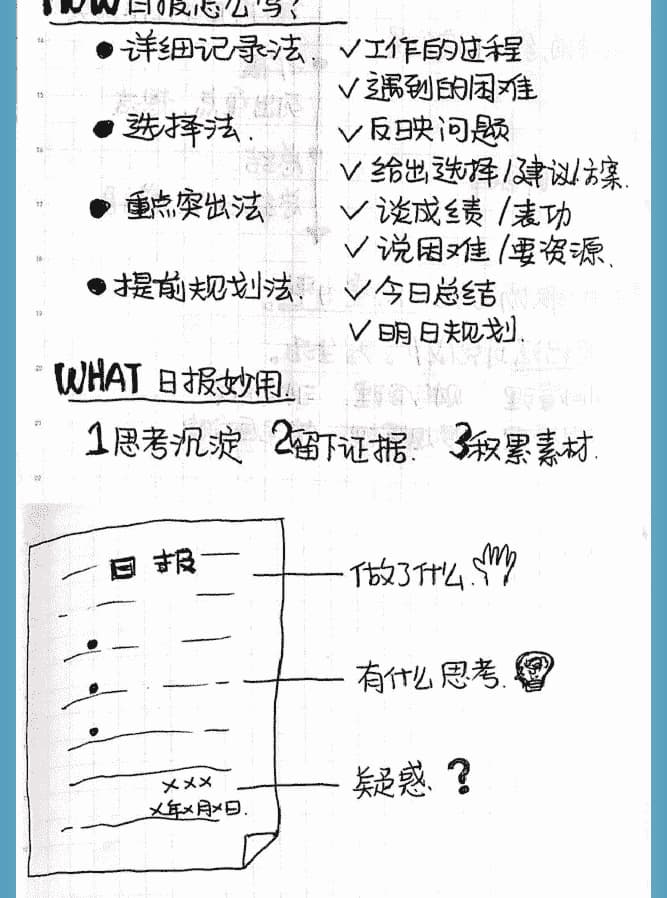 HOW 日报怎么写?
● 详细记录法. ✓工作的过程
✓遇到的困难
● 选择法. ✓反映问题
✓给出选择/建议/方案.
● 重点突出法 ✓谈成绩/表功
✓说困难/要资源.
● 提前规划法. ✓今日总结
✓明日规划.
WHAT 日报妙用.
1思考沉淀 2留下证据. 3积累素材.
日报
做了什么.
有什么思考.
疑惑. ?
×××
×年×月×日.